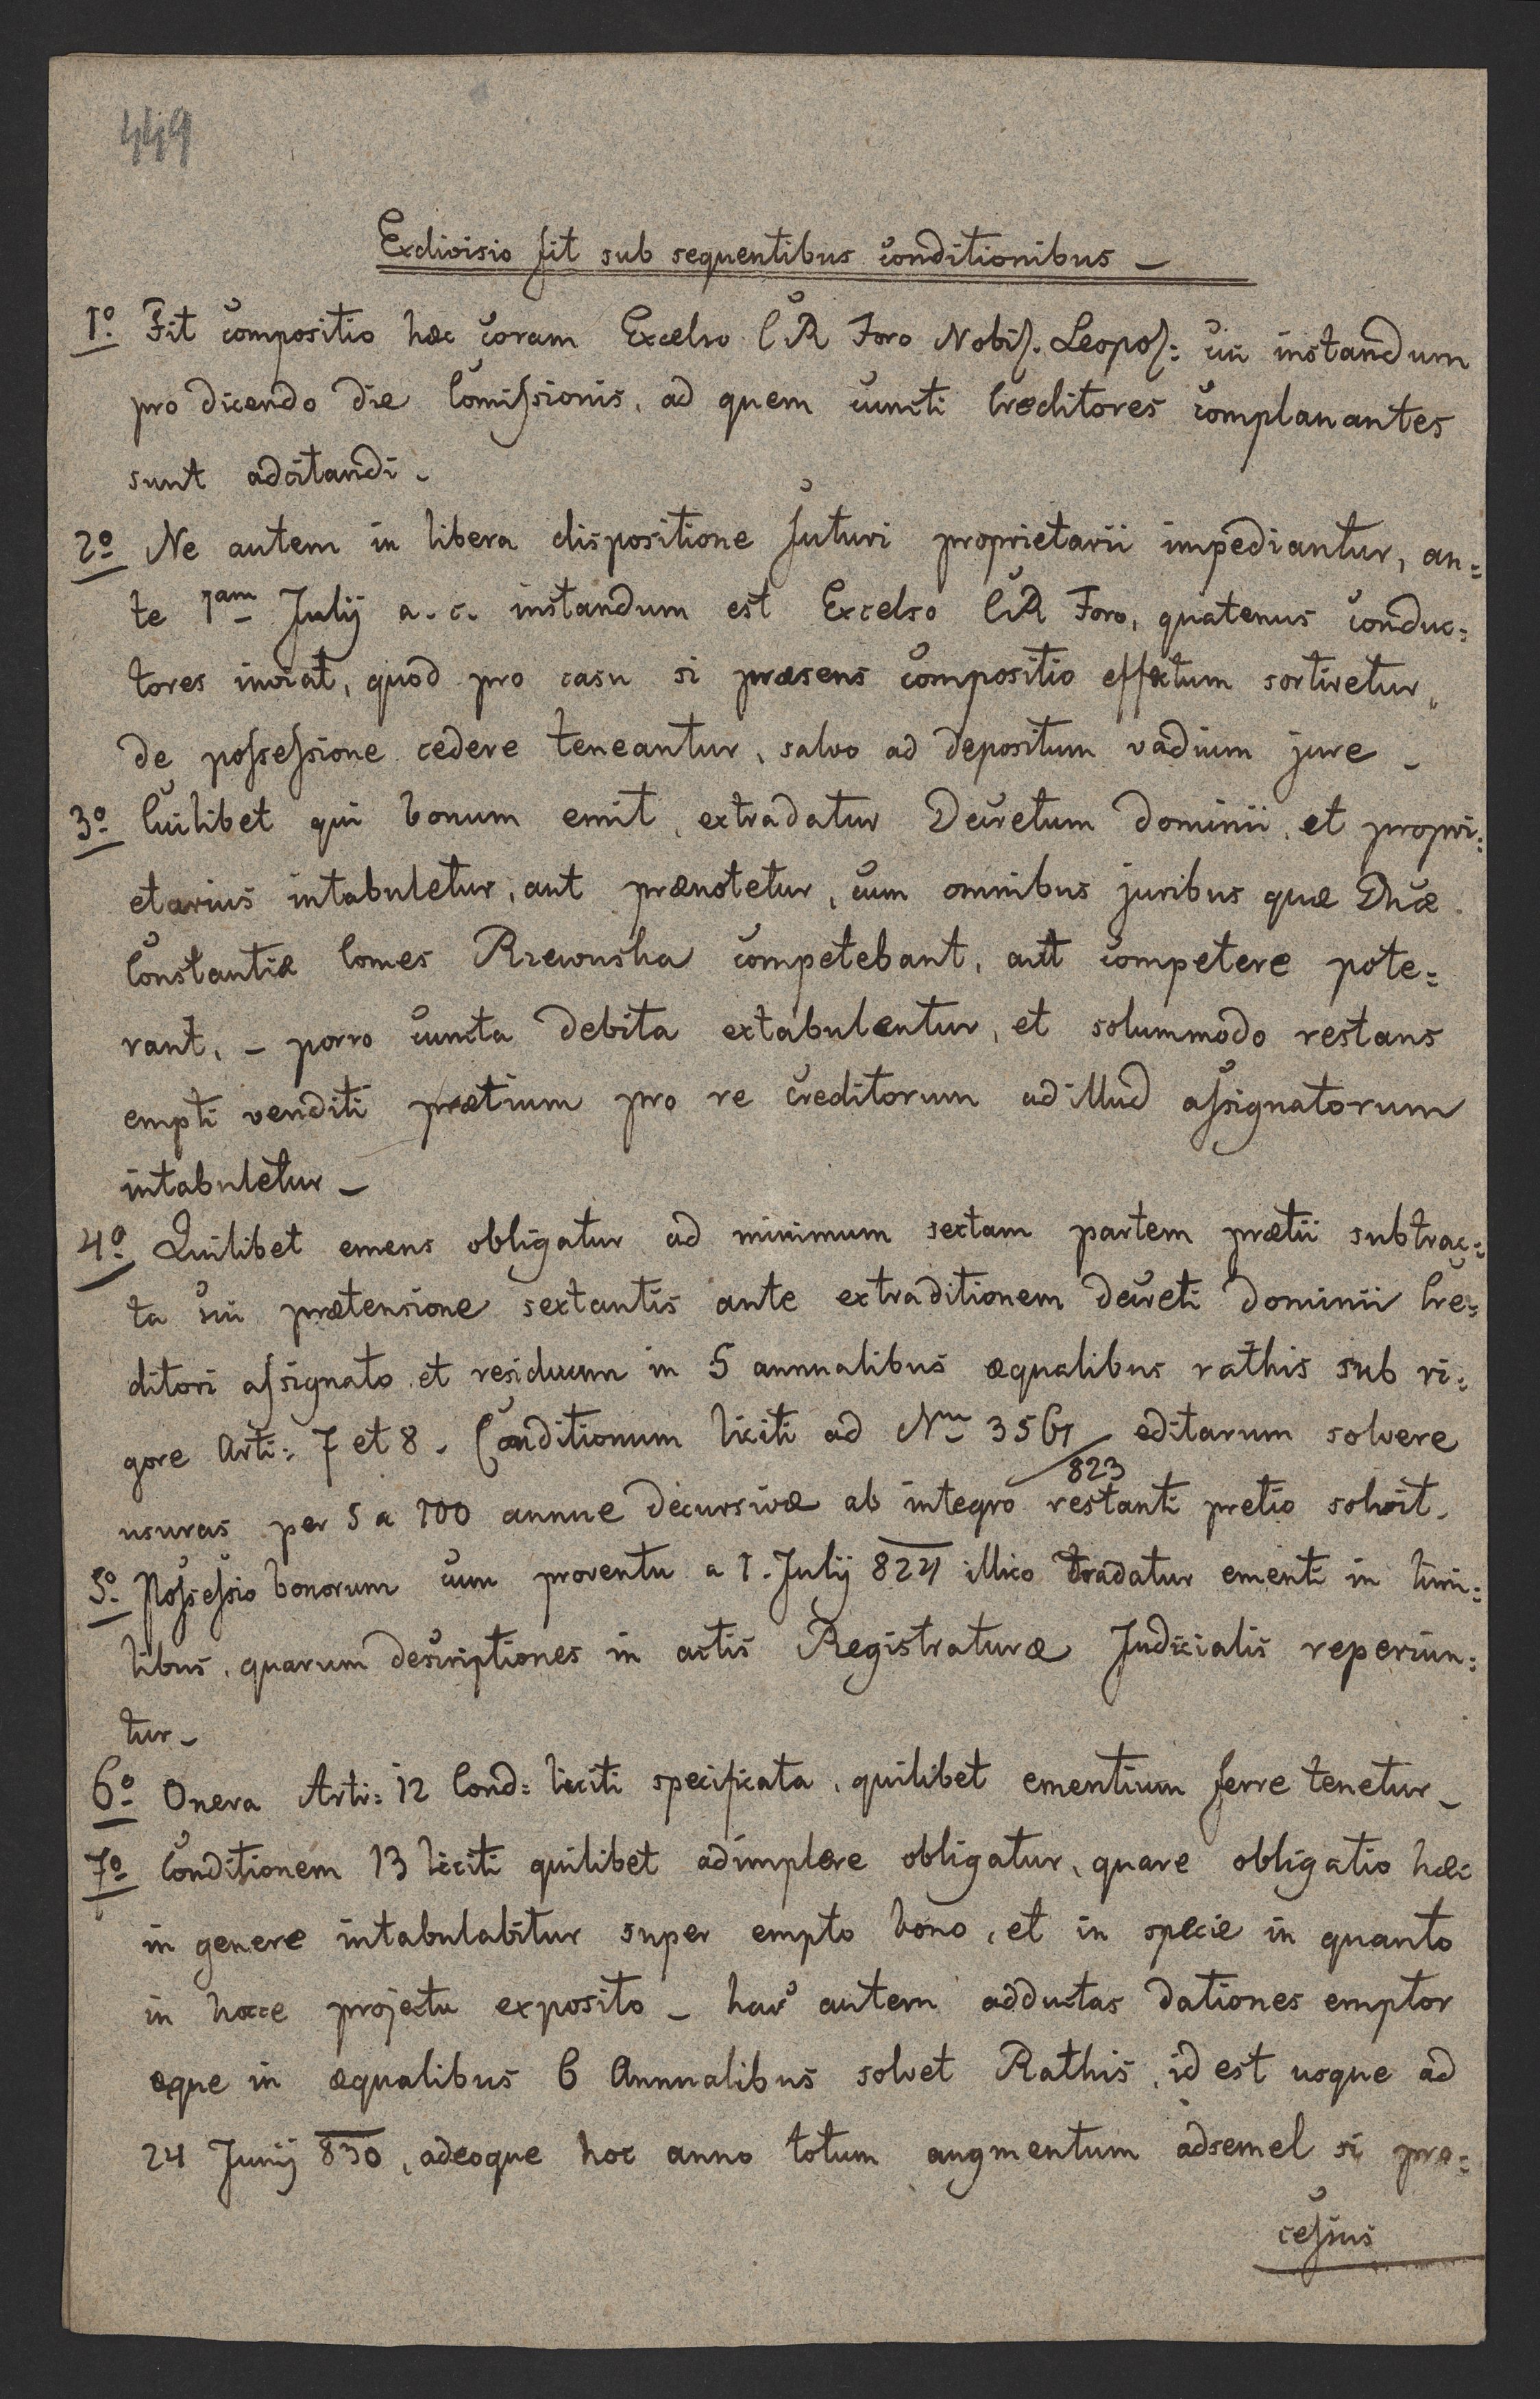 449
Exdivisio fit sub sequentibus conditionibus –
1º Fit compositio hæc coram Excelso CR Foro Nobil. Leopol: cui instandum
pro dicendo die Comissionis, ad quem cuncti Creditores complanantes
sunt adcitandi.
2º Ne autem in libera dispositione futuri proprietarii impediantur, an=
te 1am Julij a. c. instandum est Excelso CR Foro, quatenus conduc=
tores inviat, quod pro casu si præsens compositio effectum sortiretur,
de possessione cedere teneantur, salvo ad depositum vadium jure –
3º Cuilibet qui bonum emit, extradatur Decretum dominii, et propri=
etarius intabuletur, aut prænotetur, cum omnibus juribus quæ Dnæ
Constantiæ Comes Rzewuska competebant, aut competere pote=
rant, – porro cuncta debita extabulentur, et solummodo restans
empti venditi prætium pro re creditorum ad illud assignatorum
intabuletur –
4º Quilibet emens obligatur ad minimum sextam partem prætii subtrac=
ta sui prætensione sextantis ante extraditionem decreti dominii Cre=
ditori assignato et residuum in 5 annualibus æqualibus rathis sub ri=
gore Arti: 7 et 8. Conditionum liciti ad Nrm 3561/823 editarum solvere
usuras per 5 a 100 annue decursivæ ab integro restanti pretio solvit.
5º Possessio bonorum cum proventu a 1. Julij 824 illico tradatur ementi in limi=
tibus, quarum descriptiones in actis Registraturæ Judicialis reperiun=
tur –
6º Onera Arti: 12 Cond: liciti specificata, quilibet ementium ferre tenetur –
7º Conditionem 13 liciti quilibet adimplere obligatur, quare obligatio hæc
in genere intabulabitur super empto bono, et in specie in quanto
in hocce projectu exposito – has autem adductas dationes emptor
æque in æqualibus 6 Annualibus solvet Rathis, id est usque ad
24 Junij 830, adeoque hoc anno totum augmentum adsemel si pro=
cessus